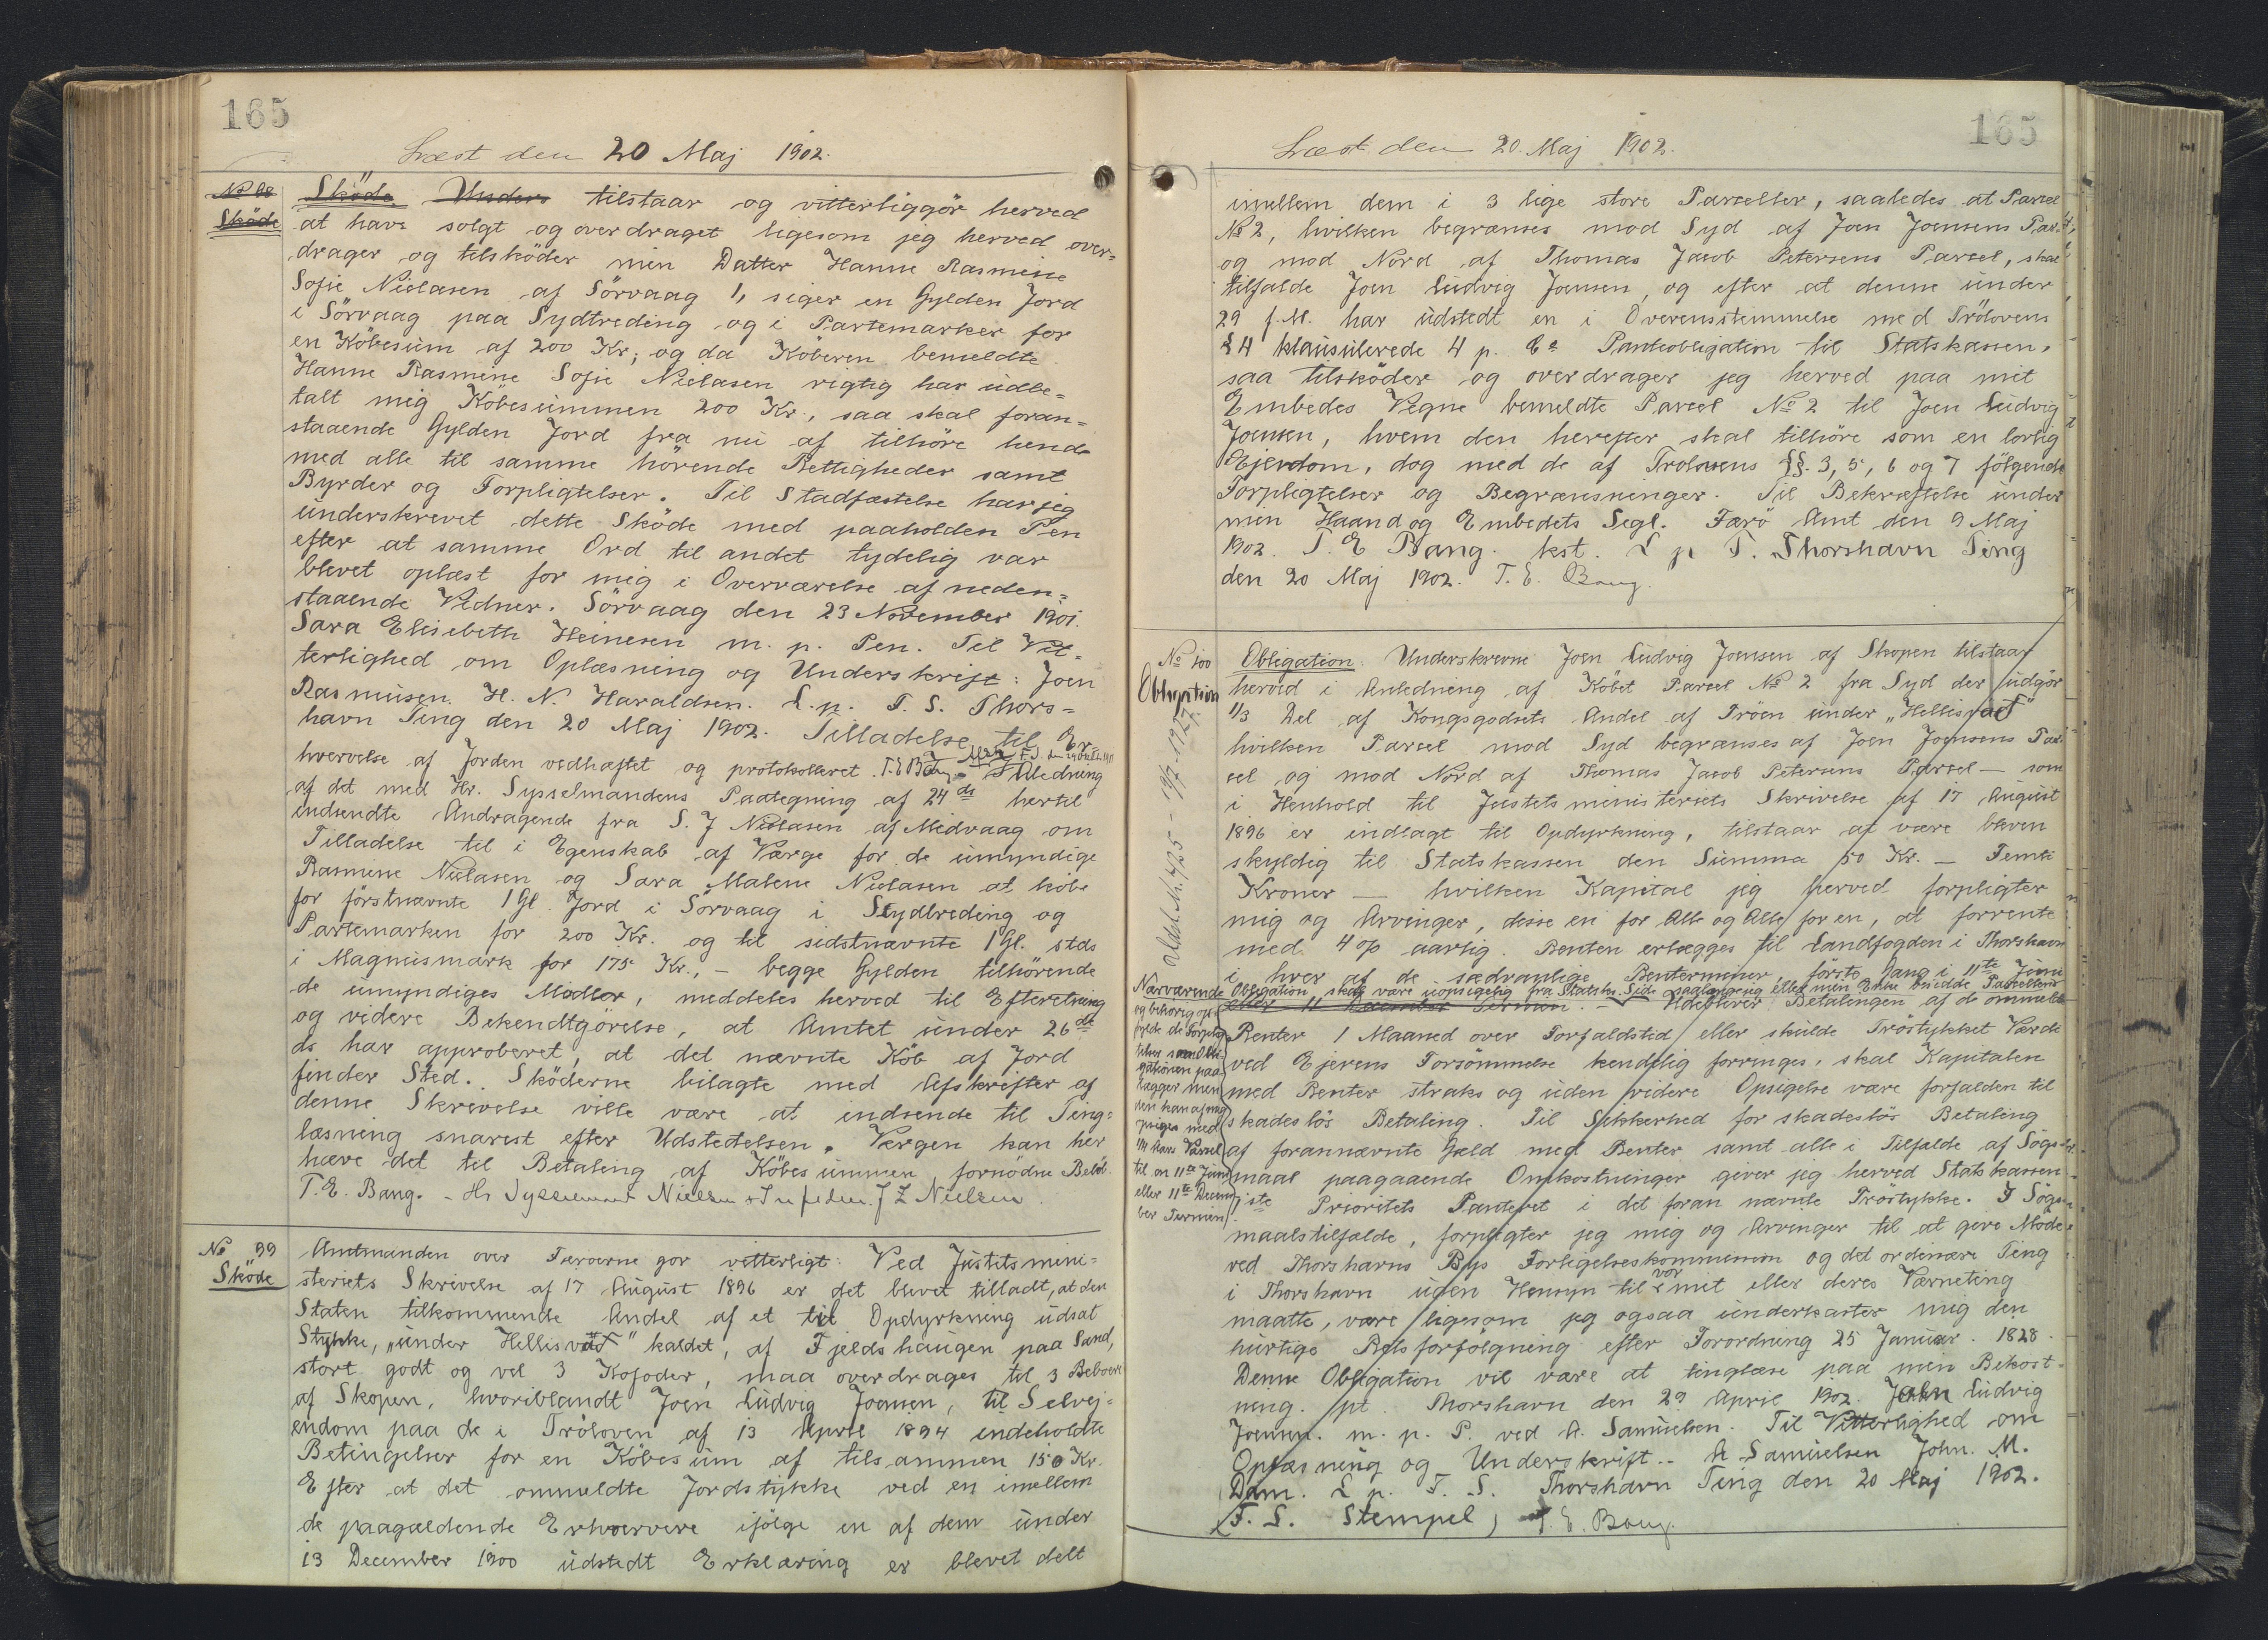 165
Læst den 20 Maj 1902.
No 98
Sköde
Sköde Unders tilstaar og vitterliggör herved
at have solgt og overdraget ligesom jeg herved over=
drager og tilsköder min Datter Hanne Rasmine
Sofie Nielasen af Sörvaag 1, siger en Gylden Jord
i Sörvaag paa Sydtreding og i Partemarken for
en Köbesum af 200 Kr; og da Köberen bemeldte
Hanne Rasmine Sofie Nielasen rigtig har udbe=
talt mig Köbesummen 200 Kr., saa skal foran=
staaende Gylden Jord fra nu af tilhöre hende
med alle til samme hörende Rettigheder samt
Byrder og Forpligtelser. Til Stadfæstelse har jeg
underskrevet dette Sköde med paaholden Pen
efter at samme Ord til andet tydelig var
blevet oplæst for mig i Overværelse af neden=
staaende Vidner. Sörvaag den 23 November 1901.
Sara Elisebeth Heinesen m. p. Pen. Til Vit=
terlighed om Oplæsning og Underskrift: Joen
Rasmusen. H. N. Haraldsen. L. p. T. S. Thors=
havn Ting den 20 Maj 1902. Tilladelse til Er=
hvervelse af Jorden vedhæftet og protokolleret. T. E Bang - I Anledning
af det med Hr. Sysselmandens Paategning af 24 ds hertil
indsendte Andragende fra S. J Nielasen af Midvaag om
Tilladelse til i Egenskab af Værge for de umyndige
Rasmine Nielasen og Sara Malene Nielasen at köbe
for förstnævnte 1 Gl. Jord i Sörvaag i Sydtreding og
Partemarken for 200 Kr. og til sidstnævnte 1 Gl. stds
i Magnusmark for 175 Kr., - begge Gylden tilhörende
de umyndiges Moder, meddeles herved til Efterretning
og videre Bekendtgörelse, at Amtet under 26 de
ds har approberet, at det nævnte Köb af Jord
finder Sted. Sköderne bilagte med Afskrifter af
denne Skrivelse ville være at indsende til Ting=
læsning snarest efter Udstedelsen. Værgen kan her
hæve det til Betaling af Köbesummen fornödne Belöb.
T. E. Bang. - Hr Sysselmand Nielsen J Z Nielsen.
No 99
Sköde
Amtmanden over Færoerne gor vitterligt: Ved Justitsmini=
steriets Skrivelse af 17 August 1896 er det blevet tilladt, at den
Staten tilkommende Andel af et til Opdyrkning udsat
Stykke, "under Hellisvad" kaldet, af Fjeldshaugen paa Sand,
stort godt og vel 3 Kofoder, maa overdrages til 3 Beboere
af Skopen, hvoriblandt Joen Ludvig Joensen, til Selvej=
endom paa de i Tröloven af 13 April 1894 indeholdte
Betingelser for en Köbesum af tilsammen 150 Kr.
Efter at det ommeldte Jordstykke ved en imellem
de paagældende Erhververe ifölge en af dem under
13 December 1900 udstedt Erklæring er blevet delt
165
Læst den 20. Maj 1902.
imellem dem i 3 lige store Parceller, saaledes at Parcel
No 2, hvilken begrænses mod Syd af Joen Joensens Par.
og mod Nord af Thomas Jacob Petersens Parcel, skal
tilfalde Joen Ludvig Joensen, og efter at denne under
29 f. M. har udstedt en i Overensstemmelse med Trölovens
§ 4 klausulerede 4 p. Ct Panteobligation til Statskassen,
saa tilsköder og overdrager jeg herved paa mit
Embedes Vegne bemeldte Parcel No 2 til Joen Ludvig
Joensen, hvem den herefter skal tilhöre som en lovlig
Ejendom, dog med de af Trolovens §§. 3, 5, 6 og 7 fölgende
Forpligtelser og Begrænsninger. Til Bekræftelse under
min Haand og Embedets Segl. Færö Amt den 9 Maj
1902. T. E Bang. kst. L p T. Thorshavn Ting
den 20 Maj 1902. T. E. Bang.
No 100
Obligation
Obligation. Underskrevne Joen Ludvig Joensen af Skopen tilstaar
herved i Anledning af Köbet Parcel No 2 fra Syd der udgör
1/3 Del af Kongsgodsets Andel af Tröen under "Hellisvad"
hvilken Parcel mod Syd begrænses af Joen Joensens Par=
cel og mod Nord af Thomas Jacob Petersens Parcel - som
i Henhold til Justitsministeriets Skrivelse af 17 August
1896 er indlagt til Opdyrkning, tilstaar at være bleven
skyldig til Statskassen den Summa 50 Kr. - Femti
Kroner - hvilken Kapital jeg herved forpligter
mig og Arvinger, disse en for Alle og Alle for en, at forrente
med 4 op aarlig. Renten erlægges til Landfogden i Thorshavn
i hver af de sædvanlige Rentterminer, förste Gang i 11te Juni
Obligation skal være uopsigelig fra Statsk. Side saalænge jeg eller min Enke besidde Parcellens
eller 11 December Termin. Udebliver Betalingen af de ommeldte
Renter 1 Maaned over Forfaldstid eller skulde Tröstykket Værdi
ved Ejerens Forsömmelse kendelig forringes, skal Kapitalen
med Renter straks og uden videre Opsigelse være forfalden til
skadeslös Betaling. Til Sikkerhed for skadeslös Betaling
af forannævnte Gæld med Renter samt alle i Tilfælde af Sögs-
maal paagaaende Omkostninger giver jeg herved Statskassen
1ste Prioritets Panteret i det foran nævnte Tröstykke. I Sögs=
maalstilfælde, forpligter jeg mig og Arvinger til at give Möde
ved Thorshavns Bys Forligelseskommission og det ordinære Ting
i Thorshavn uden Hensyn til vor mit eller deres Værneting
maatte, være ligesom jeg ogsaa underkaster mig den
hurtige Retsforfölgning efter Forordning 25 Januar. 1828.
Denne Obligation vil være at tinglæse paa min Bekost-
ning. pt. Thorshavn den 29 April 1902. John Ludvig
Joensen. m. p. P. ved A. Samuelsen. Til Vitterlighed om
Oplæsning og Underskrift.. A Samuelsen John. M.
Dam. L p. T. S. Thorshavn Ting den 20 Maj 1902.
F. S. Stempel, T. E. Bang.
Nærværende
og behörig op=
fylde de Forplig
telser som Obli=
gationen paa=
lægger men
den kan af mig
opsiges med
Varsel
til en 11te Juni
eller 11te Decem
ber Termin.